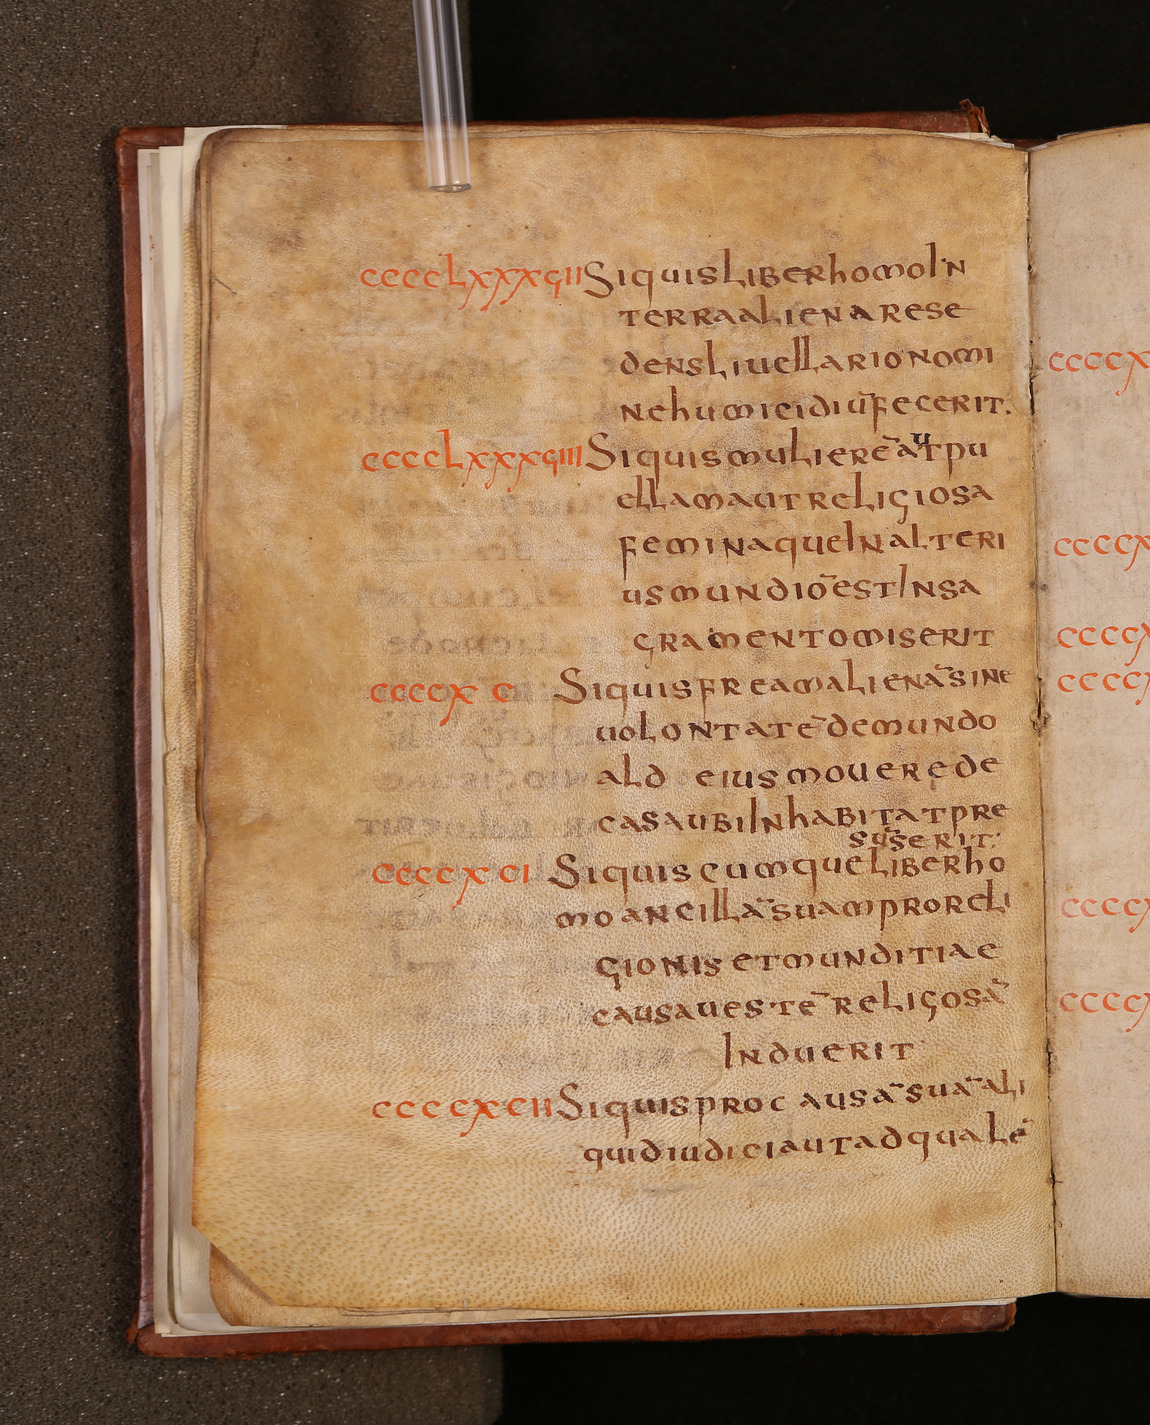 ccccLxxxçII Si quis liber homo in
terra aliena rese
dens liuellario nomi
ne humicidiū fecerit.
ccccLxxxçIII Si quis mulierē aᵘt pu
ellam aut religiosa
femina que in alteri
us mundiō est in sa
gramento miserit
ccccxc Si quis frea m alienā sine
uolontatē de mundo
ald eius mouere de
casa ubi inhabitat pre
sūserit:
ccccxcI Si quiscumque liber ho
mo ancillā suam pro reli
gionis et munditiae
causa uestē religosā
induerit
ccccxcII Si quis pro causā suā ali
quid iudici aut ad qualē
ccccx
ccccx
ccccx
ccccx
ccccx
ccccx